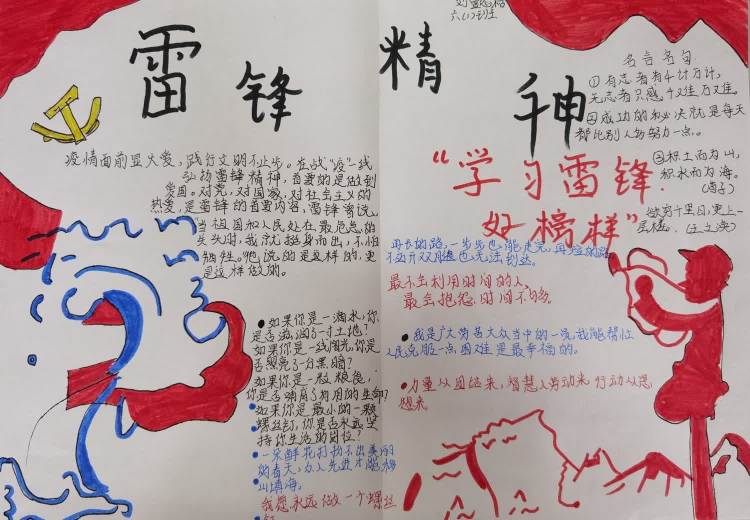 六(1)班
雷锋精神
疫情面前显大爱，践行文明不止步。在战"疫"一线
弘扬雷锋精神，首要的是做到
爱国。对党，对国家，对社会主义的
热爱，是雷锋的首要内容，雷锋常说
当祖国和人民处在最危急的
关头时，我就挺身而出，不怕
牺牲。他说的是这样的，更
是这样做的。
如果你是一滴水，你
是否滋润了一寸土地？
如果你是一线阳光，你是
否照亮了一分黑暗？
如果你是一粒粮食，
你是否哺育了有用的生命？
如果你是最小的一颗
螺丝钉，你是否永远坚
持你生活的岗位？
一朵鲜花打扮不出美丽
的春天，众人先进才能移
山填海。
我愿永远做一个螺丝
钉
名言名句
①有志者有千计万计，
无志者只感千难万难。
②成功的秘决就是每天
都比别人多努力一点。
③积土而为山，
积水而为海。
(荀子)
欲穷千里目，更上一
层楼。(王之涣)
"学习雷锋
好榜样"
再长的路，一步步也能走完，再短的路
不迈开双腿也无法到达。
最不会利用时间的人，
最会抱怨时间不够。
我是广大劳苦大众当中的一员，我能帮忙
人民克服一点困难是最幸福的。
力量从团结来，智慧从劳动来，行动从思
想来